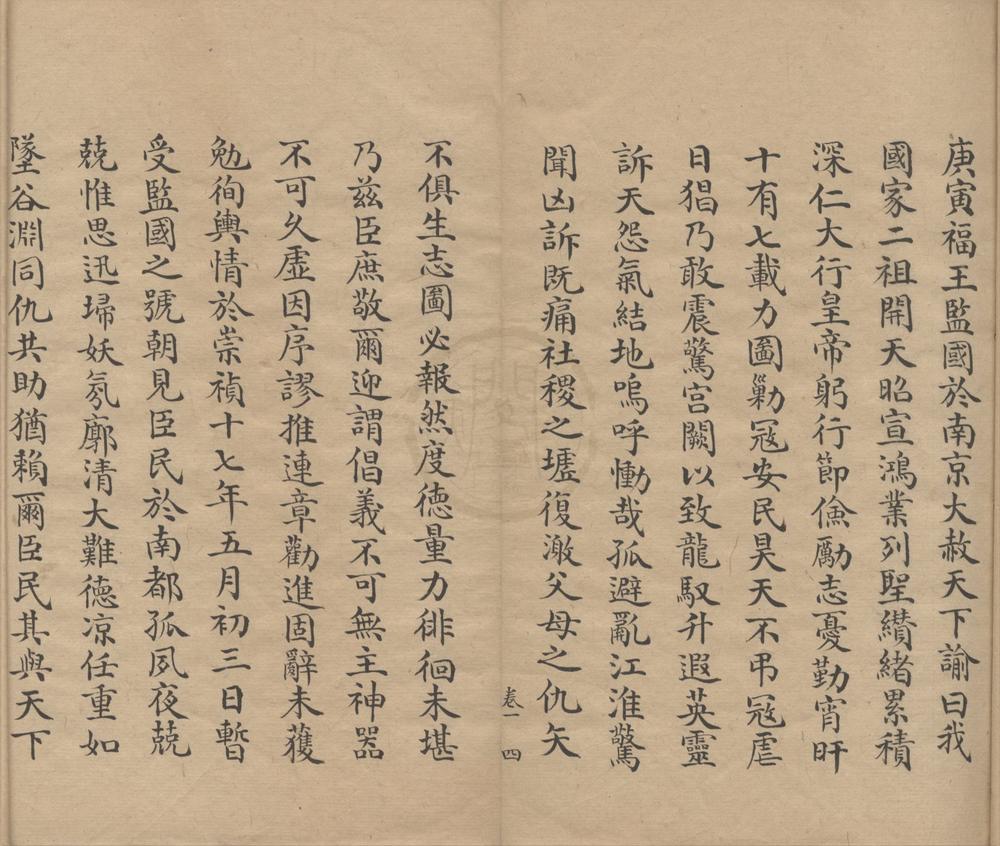 庚寅福王監國於南京大赦天下諭曰我
國家二祖開天昭宣鴻業列聖纘緒累積
深仁大行皇帝躬行節儉勵志憂勤宵旰
十有七載力圖勦寇安民昊天不弔寇虐
日猖乃敢震驚宫闕以致龍馭升遐英靈
訴天怨氣結地嗚呼慟哉孤避亂江淮驚
聞凶訴既痛社稷之墟復激父母之仇矢
卷一 四
不俱生志圖必報然度德量力徘徊未堪
乃兹臣庶敬爾迎謂倡義不可無主神器
不可久虛因序謬推連章勸進固辭未獲
勉徇輿情於崇禎十七年五月初三日暫
受監國之號朝見臣民於南都孤夙夜兢
兢惟思迅埽妖氛廓清大難德凉任重如
墜谷淵同仇共助猶賴爾臣民其與天下